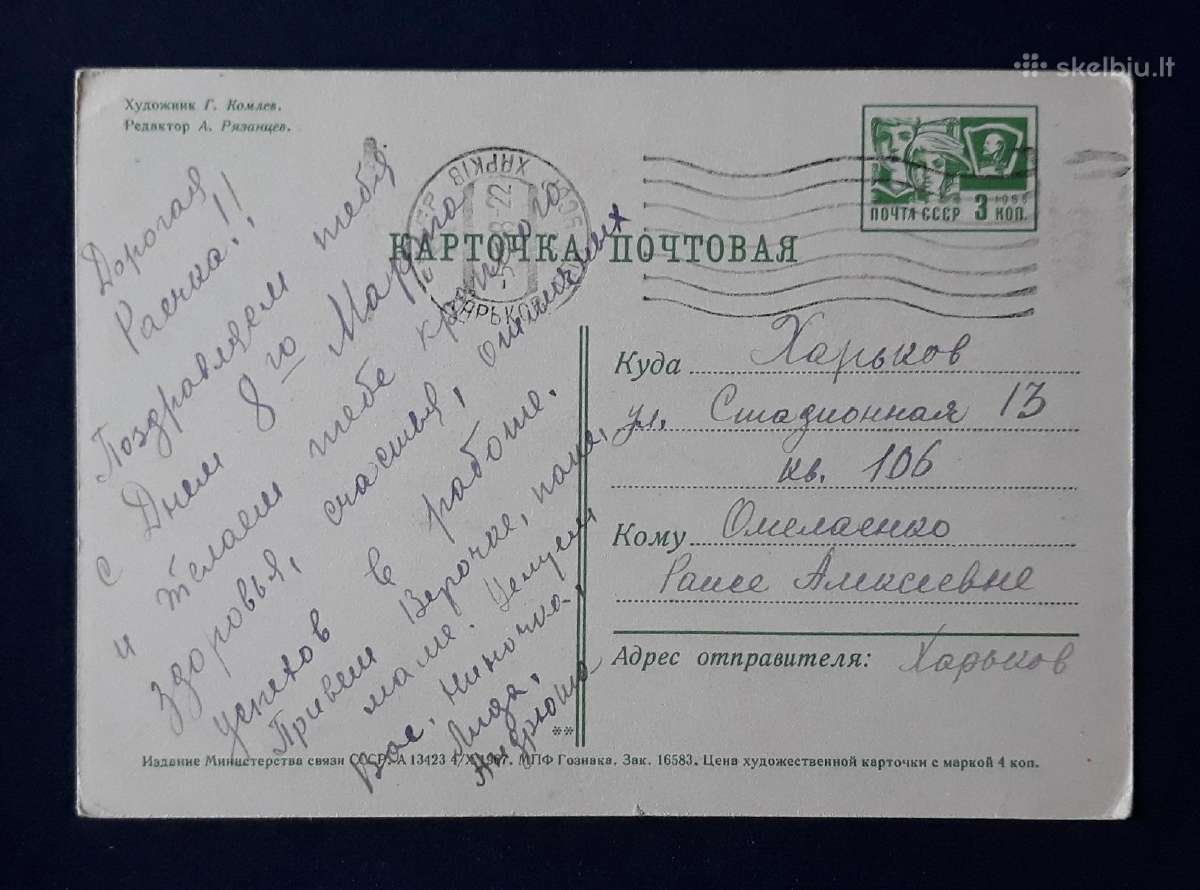 skelbiu.lt
Художник Г. Комлев.
Редактор А. Рязанцев.
ПОЧТА СССР 3 1966 КОП.
ХАРКІВ
ХАРЬКОВ
КАРТОЧКА ПОЧТОВАЯ
Дорогая
Раечка!!
Поздравляем тебя
с Днем 8го Марта
и желаем тебе крепкого
здоровья, счастья, отличных
успехов в работе.
Привет Верочке, папе,
маме. Целуем
Вас. Ниночка,
Лида,
Андрюша
Куда Харьков
ул. Стадионная 13
кв. 106
Кому Омелаенко
Раисе Алексеевне
Адрес отправителя: Харьков
**
Издание Министерства связи СССР. А 13423 4/X 1967. МПФ Гознака. Зак. 16583. Цена художественной карточки с маркой 4 коп.